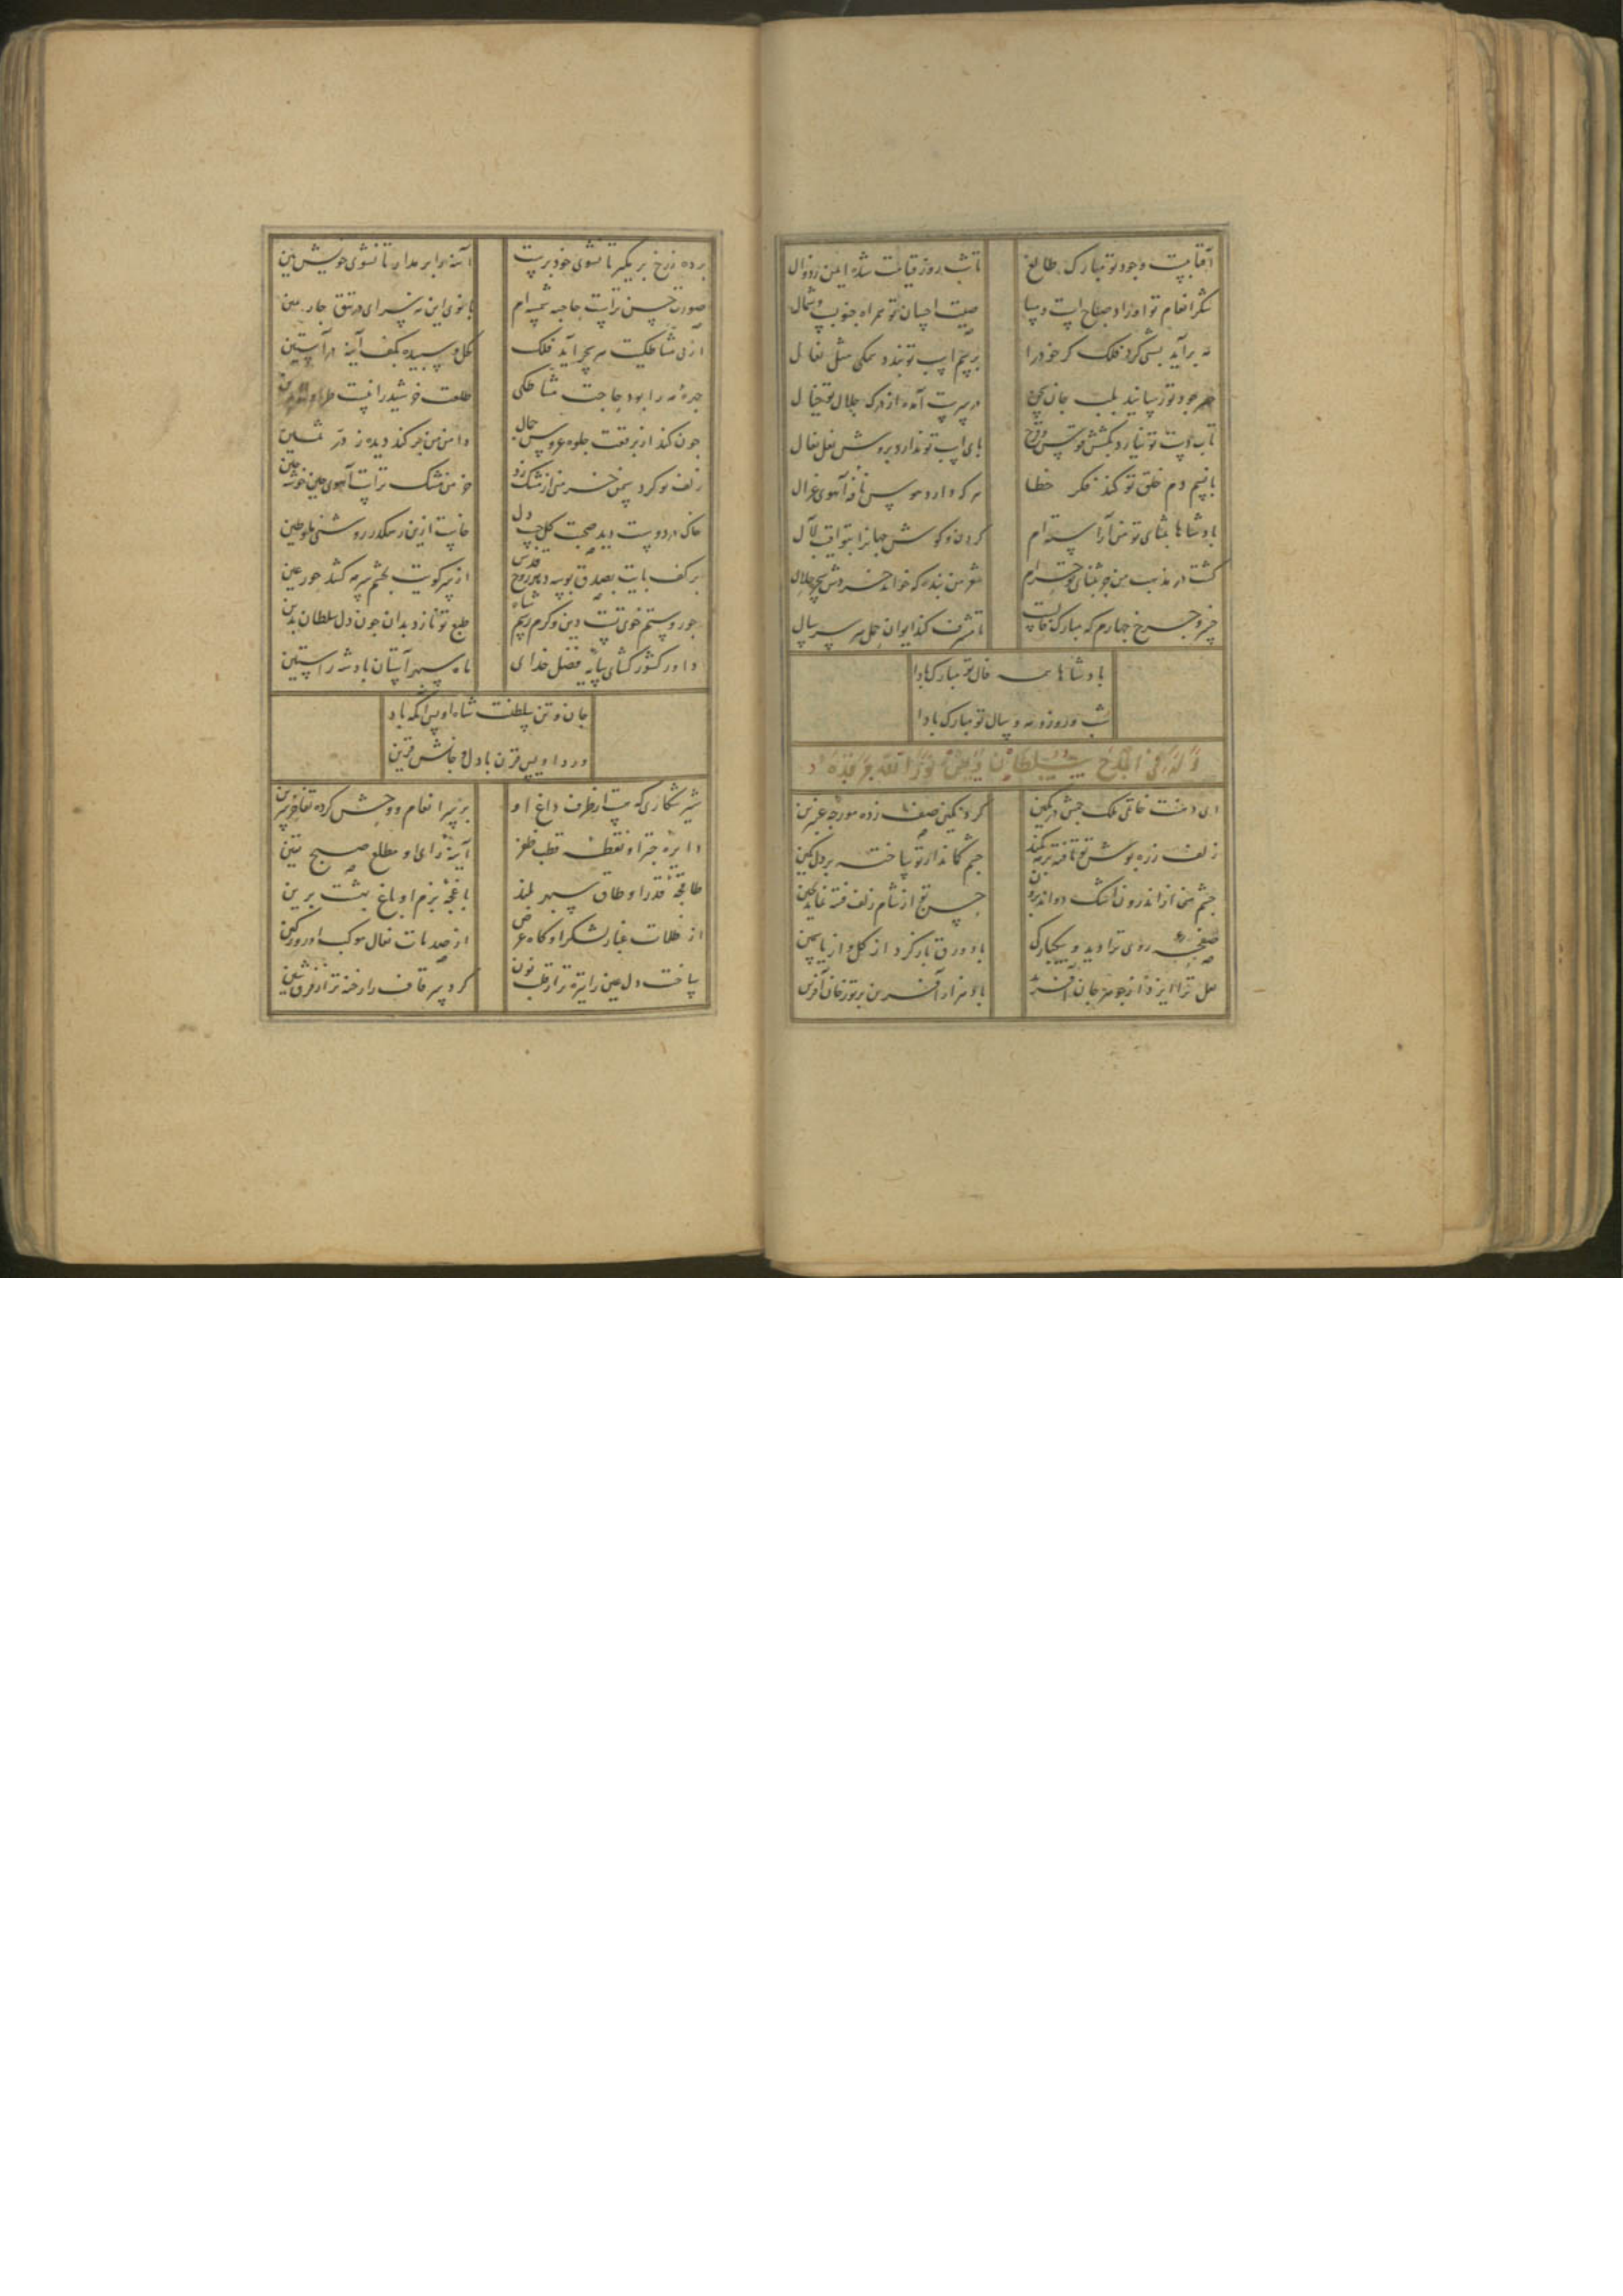 آفتابیست وجود تو مبارک طالع
تا شب روز قیامت شده ایمن ز زوال
شکر انعام تو اوراد صباح است و مسا
صیت احسان تو همراه جنوب و شمال
مه برآید بسی گرد فلک کر خود را
بر سم اسب تو بندد همگی مثل نعال
جود تو رسانید بلب جان
در سرت آمده از درک جلال تو خیال
تاب دست تو نیارد بکشش قوس قزح
پای اسب تو ندارد بروش نعل نعال
با نسیم دم خلق تو کند فکر خطا
هر که دارد هوس نافه آهوی غزال
پادشاها بثنای تو من آراسته‌ام
گردن و گوش جهانرا بتواقیب لآل
گشت در مذهب من چو بثنای تو
شعر من بنده که خواند خردش سحر حلال
خسرو چرخ چهارم که مبارک فالست
تا مشرف کند ایوان حمل هر سر سال
پادشاها همه فال تو مبارک بادا
شب و روز و مه و سال تو مبارک بادا
وله فی المدح سلطان اویس نور الله مرقده
ای دهنت خاتمی ملک حبش در نگین
گرد نگین صف زده مورچه عنبرین
زلف زره پوش تو تافته بر مه کمند
چشم کماندار تو ساخته بر دل کمین
چشم منی از اندرون اشک دواند برون
چین رخ از شام زلف فتنه نماید بچین
صفحه روی ترا دید و بیکبارگی
باد ورق باز کرد از گل و از یاسمین
لعل ترا ایزد از جوهر جان آفرید
باد هزار آفرین بر تو ز جان آفرین
پرده ز رخ بر مگیر تا نشوی خودپرست
آینه را بر مدار تا نشوی خویش بین
صورت حسن تراست حاجبه شمسه‌ام
بانوی این نه سرای در تتق چار مین
از پی مشاطگیت مه بحر آید فلک
گل و سپیده بکف آینه در آستین
چهره مه را بود حاجت مشاطگی
طلعت خورشید را نیست طراوت
چون کند از برقعت جلوه عروس جمال
دامن من پر کند دیده ز در ثمین
زلف تو کرد سمن خرمنی از مشک زد
خرمن مشک تراست آهوی چین خوشه چین
خاک در دوست دید صحبت گل چپ دل
خاست ازین رهگذر روشنی ما و طین
بر کف پایت بصدق بوسه دهد روح قدس
از سر کویت بچشم سرمه کشد حور عین
جور و ستم خوی تست دین و کرم رسم شاه
طبع تو نازد بدان چون دل سلطان بدین
داور کشور گشای سایه فضل خدای
ماه سپهر آستان پادشه راستین
جان و تن سلطنت شاه اویس آنکه باد
ورد اویس قرن با دل و جانش قرین
شیر شکاری که هست از طرف داغ او
بر سر انعام و وحش کرده تفاخر سرین
دایره چتر او نقطه قطب ظفر
آینه رای او مطلع صبح مبین
طاقچه قدر او طاق سپهر بلند
باغچه بزم او باغ بهشت برین
از ظلمات غبار لشکر او گاه عرض
از صدمات نعال موکب او روز کین
ساخت دل عین را تیره تر از قلب نون
کرد سر قاف را رخنه تر از فرق شین